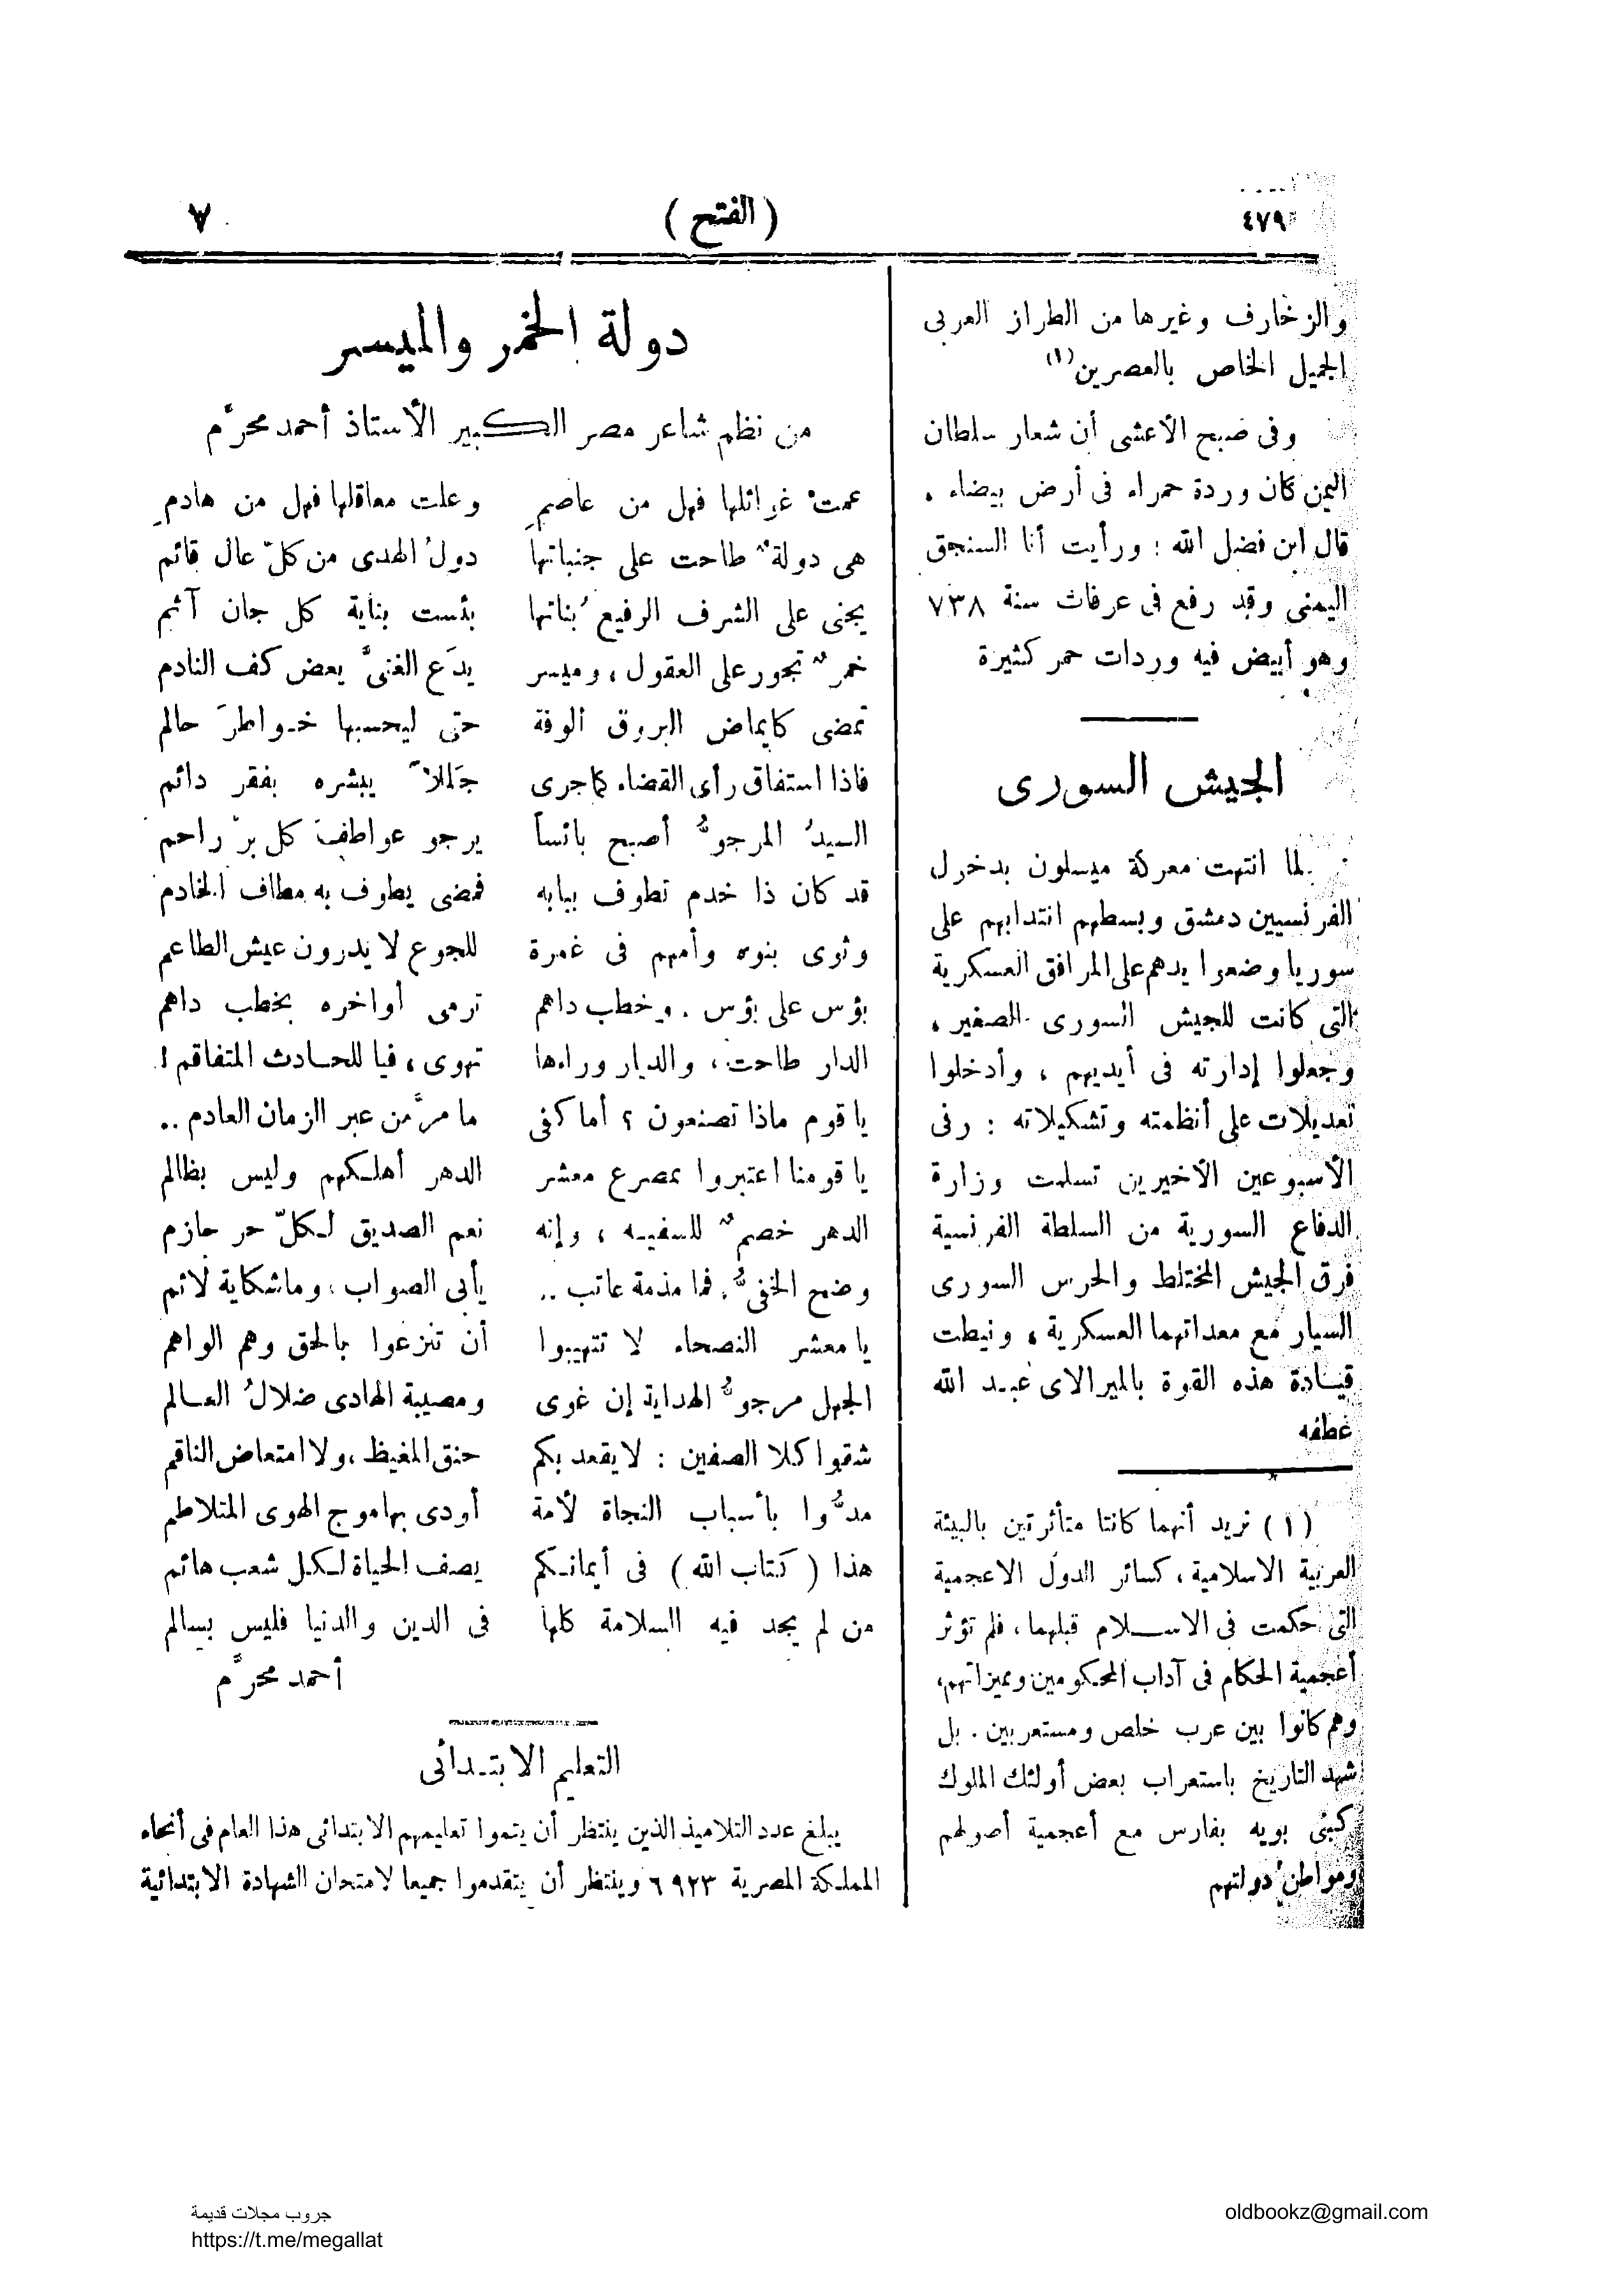 ٤٧٩
( الفتح )
٧
والزخارف وغيرها من الطراز العربى
الجميل الخاص بالعصرين(١)
وفى صبح الأعشى أن شعار سلطان
اليمن كان وردة حمراء فى أرض بيضاء .
قال ابن فضل الله : ورأيت أنا السنجق
اليمنى وقد رفع فى عرفات سنة ٧٣٨
وهو أبيض فيه وردات حمر كثيرة
الجيش السورى
لما انتهت معركة ميسلون بدخول
الفرنسيين دمشق وبسطهم انتدابهم على
سوريا وضعوا يدهم على المرافق العسكرية
التى كانت للجيش السورى الصغير ،
وجعلوا إدارته فى أيديهم ، وأدخلوا
تعديلات على أنظمته وتشكيلاته : وفى
الأسبوعين الأخيرين تسلمت وزارة
الدفاع السورية من السلطة الفرنسية
فرق الجيش المختلط والحرس السورى
السيار مع معداتهما العسكرية ، ونيطت
قيادة هذه القوة بالميرالاى عبد الله
عطفه
(١) نريد أنهما كانتا متأثرتين بالبيئة
العربية الاسلامية ، كسائر الدول الاعجمية
التى حكمت فى الاسلام قبلهما ، فلم تؤثر
أعجمية الحكام فى آداب المحكومين ومميزاتهم ،
وهم كانوا بين عرب خلص ومستعربين . بل
شهد التاريخ باستعراب بعض أولئك الملوك
كبنى بويه بفارس مع أعجمية أصولهم
ومواطن دولتهم
دولة الخمر والميسر
من نظم شاعر مصر الكبير الأستاذ أحمد محرَّم
عمتْ غوائلها فهل من عاصمِ وعلت معاقلها فهل من هادمِ
هى دولةٌ طاحت على جنباتها دولُ الهدى من كلّ عال قائم
يجنى على الشرف الرفيع بُناتها بئست بناية كل جان آثم
خمرٌ تجور على العقول ، وميسر يدَع الغنىَّ يعض كف النادم
تمضى كايماض البروق ألوفة حتى ليحسبها خواطرَ حالم
فاذا استفاق رأى القضاء كما جرى جَللاً يبشره بفقر دائم
السيدُ المرجوُّ أصبح بائساً يرجو عواطفَ كل برّ راحم
قد كان ذا خدم تطوف ببابه فمضى يطوف به مطاف الخادم
وثوى بنوه وأمهم فى غمرة للجوع لا يدرون عيش الطاعم
بؤس على بؤس . وخطب داهم ترمى أواخره بخطب داهم
الدار طاحت ، والديار وراءها تهوى ، فيا للحادث المتفاقم !
يا قوم ماذا تصنعون ؟ أما كفى ما مرَّ من عبر الزمان العادم ..
يا قومنا اعتبروا بمصرع معشر الدهر أهلكهم وليس بظالم
الدهر خصمٌ للسفيه ، وإنه نعم الصديق لكلّ حر حازم
وضح الخفىُّ . فما مذمة عاتب .. يأبى الصواب ، وما شكاية لائم
يا معشر النصحاء لا تتهيبوا أن تنزعوا بالحق وهم الواهم
الجهل مرجوُّ الهداية إن غوى ومصيبة الهادى ضلالُ العالم
شقوا كلا الصفين : لا يقعد بكم حنق المغيظ ، ولا امتعاض الناقم
مدُّوا بأسباب النجاة لأمة أودى بها موج الهوى المتلاطم
هذا ( كتاب الله ) فى أيمانكم يصف الحياة لكل شعب هائم
من لم يجد فيه السلامة كلها فى الدين والدنيا فليس بسالم
أحمد محرَّم
التعليم الابتدائى
يبلغ عدد التلاميذ الذين ينتظر أن يتموا تعليمهم الابتدائى هذا العام فى أنحاء
المملكة المصرية ٦٩٢٣ وينتظر أن يتقدموا جميعا لامتحان الشهادة الابتدائية
جروب مجلات قديمة
https://t.me/megallat
oldbookz@gmail.com